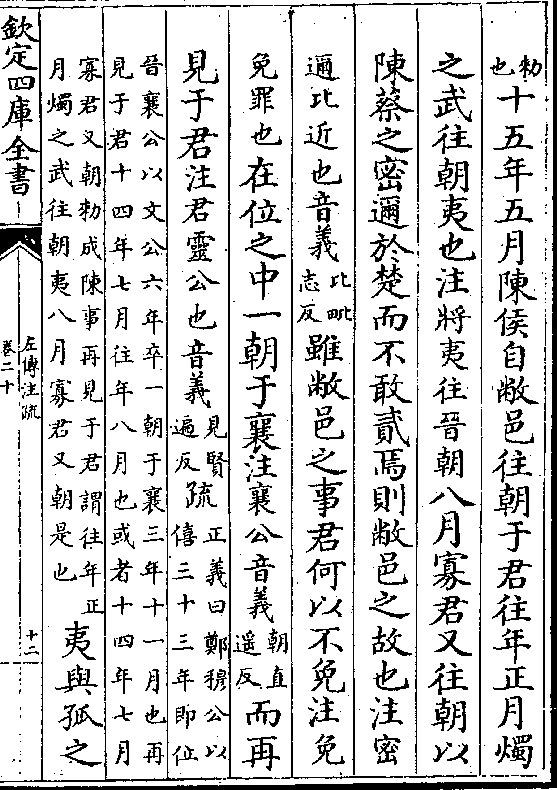 勑也十五年五月陳侯自敝邑往朝于君往年正月燭
之武往朝夷也注將夷往晉朝八月寡君又往朝以
陳蔡之密邇於楚而不敢貳焉則敝邑之故也注密
邇比近也音義比毗志反雖敝邑之事君何以不免注免
免罪也在位之中一朝于襄注襄公音義朝直遥反而再
見于君注君靈公也音義見賢遍反疏正義曰鄭穆公以僖三十三年即位
晉襄公以文公六年卒一朝于襄三年十一月也再
見于君十四年七月往年八月也或者十四年七月
寡君又朝勑成陳事再見于君謂往年正
月燭之武往朝夷八月寡君又朝是也夷與孤之
欽定四庫全書
左傳注疏
卷二十
十二